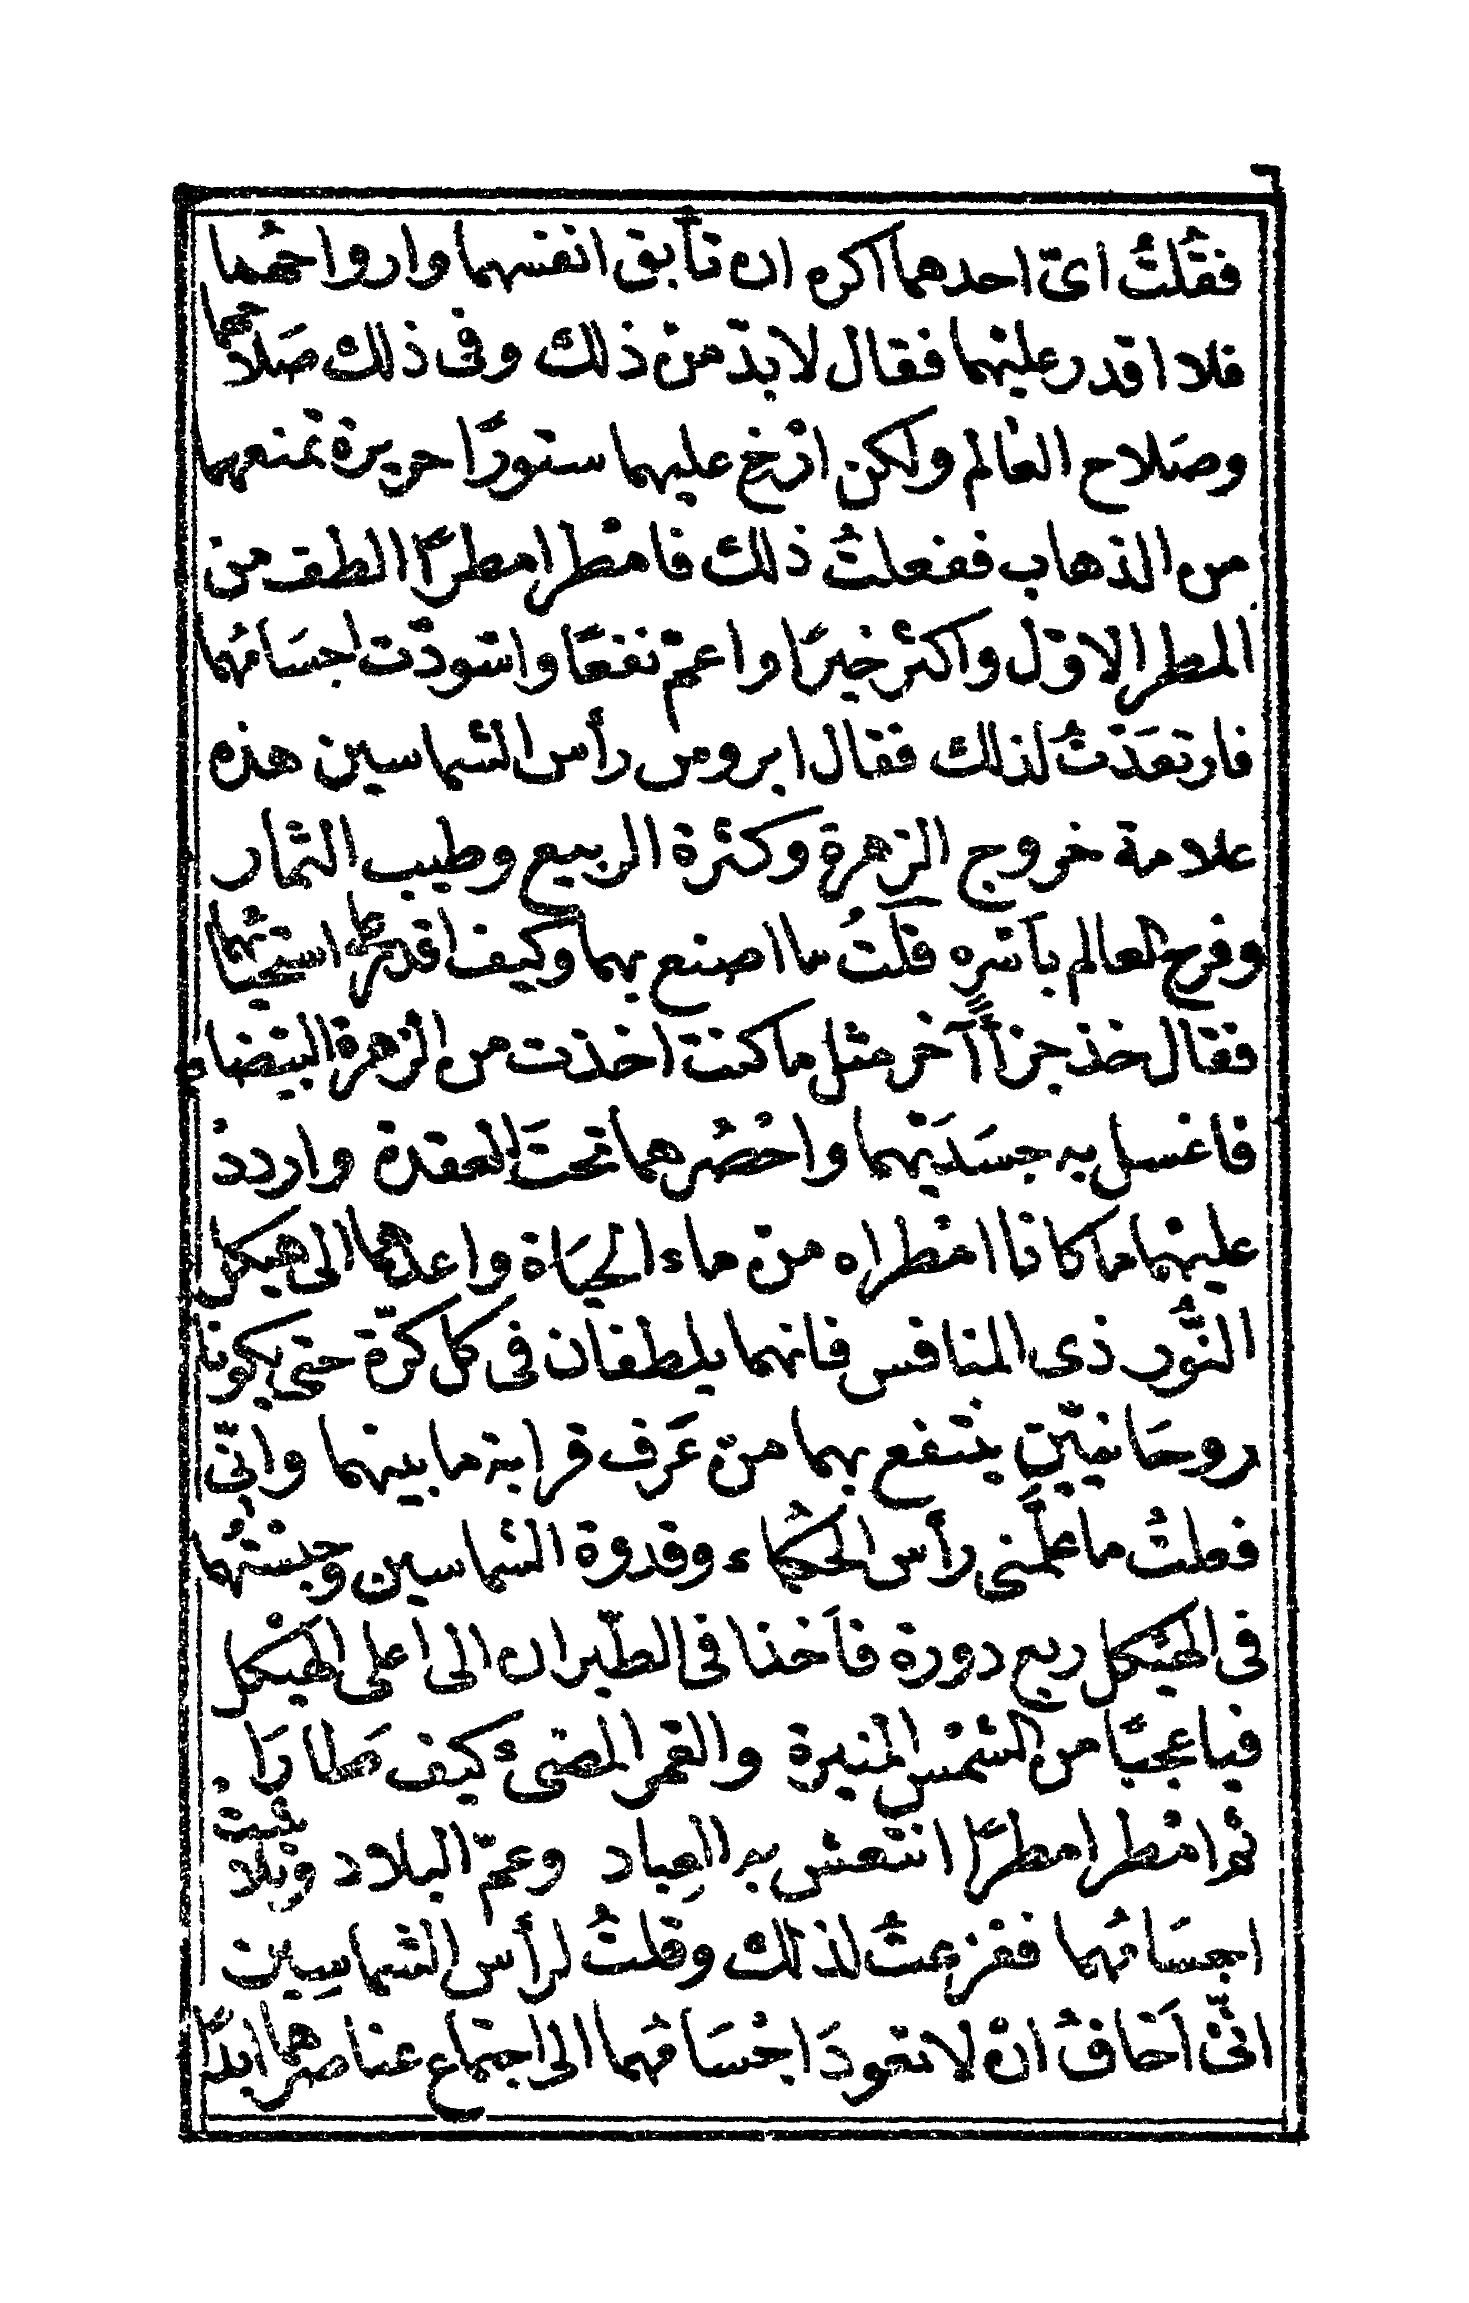 فقلتُ اىّ احدهما اكره ان تأبق انفسهما وارواحهما
فلا اقدر عليهما فقال لا بدّ من ذلك وفى ذلك صَلاحهما
وصَلاح العالم ولكن ارْخ عليهما ستورًا حريرة تمنعهما
من الذهاب ففعلتُ ذلك فامْطرا مطرًا الطف من
المطر الاوّل واكثر خيرًا واعمّ نفعًا واسْودّت اجسَامُهما
فارتعَدْتُ لذلك فقال ابروس رأس الشماسين هذه
علامة خروج الزهرة وكثرة الربيع وطيب الثمار
وفرح العالم بأسْره قلتُ ما اصنع بهما وكيف اقدر على استحيائهما
فقال خذ جزأً آخر مثل ما كنت اخذت من الزهرة البيْضاء
فاغسل به جسَدَيْهما واحْصُرهما تحتَ العقدة وارددْ
عليْهما ما كانا امْطراه من ماء الحيَاة واعدهما الى هيكل
النُّور ذى المنافس فانهما يلطفان فى كل كرّة حتى يكونا
روحَانيّيْن ينْتفع بهما من عَرف قرابة ما بينهما وانّى
فعلتُ ما علّمَنى رأس الحكُماء وقدوة الشماسين وحبسْتُهما
فى الهيْكل ربع دورة فأخذا فى الطّيران الى اعلى الهيْكل
فيا عجبًا من الشمْس المنيرة والقمر المضىء كيف طَارَا
ثم امْطرا مطرًا انتعش به العِباد وعمّ البلاد وبَلاد
اجسَامُهما ففزعتُ لذلك وقلتُ لرأس الشماسِين
انّىْ اَخافُ انْ لا تعودَ اجْسَامُهما الى اجتماع عناصرهما ابدًا